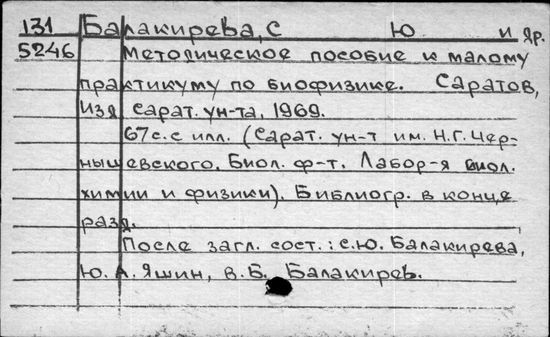 131 Балакирева, С Ю и др.
5246 Методическое пособие к малому
практикуму по биофизике. Саратов,
Изд Сарат. ун-та, 1969.
67с.с илл. (Сарат. ун-т им. Н.Г. Чер-
нышевского. Биол. ф-т. Лабор-я биол.
химии и физики). Библиогр. в конце
разд.
После загл. сост.: С.Ю. Балакирева,
Ю. А. Яшин, В.Б. Балакирев.